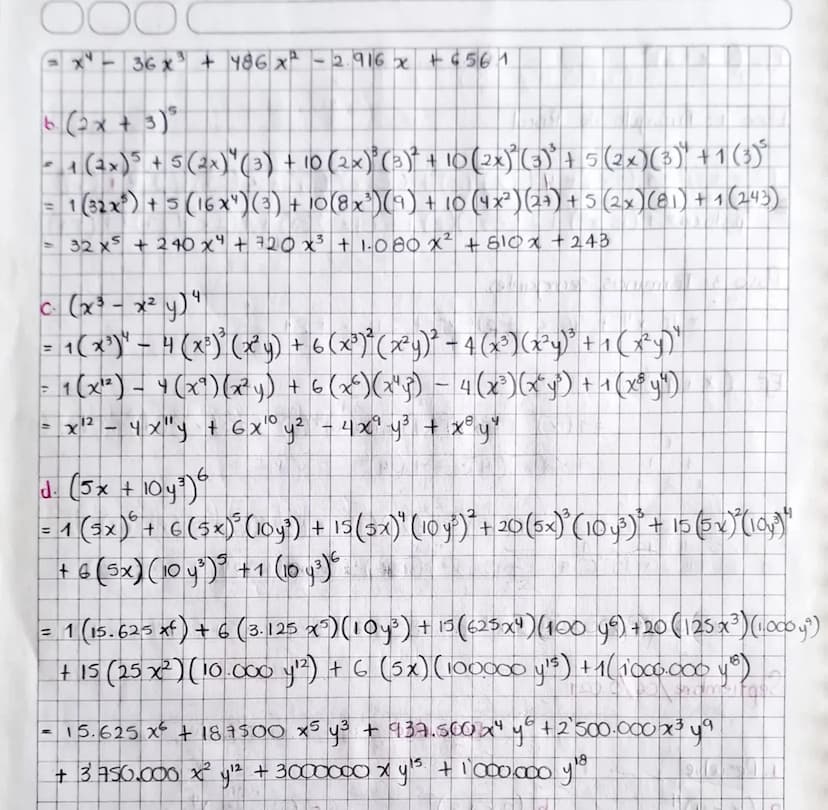 = x⁴ - 36x³ + 486x² - 2.916x + 6561
b. (2x + 3)⁵
= 1(2x)⁵ + 5(2x)⁴(3) + 10(2x)³(3)² + 10(2x)²(3)³ + 5(2x)(3)⁴ + 1(3)⁵
= 1(32x⁵) + 5(16x⁴)(3) + 10(8x³)(9) + 10(4x²)(27) + 5(2x)(81) + 1(243)
= 32x⁵ + 240x⁴ + 720x³ + 1.080x² + 810x + 243
c. (x³ - x²y)⁴
= 1(x³)⁴ - 4(x³)³(x²y) + 6(x³)²(x²y)² - 4(x³)(x²y)³ + 1(x²y)⁴
= 1(x¹²) - 4(x⁹)(x²y) + 6(x⁶)(x⁴y²) - 4(x³)(x⁶y³) + 1(x⁸y⁴)
= x¹² - 4x¹¹y + 6x¹⁰y² - 4x⁹y³ + x⁸y⁴
d. (5x + 10y³)⁶
= 1(5x)⁶ + 6(5x)⁵(10y³) + 15(5x)⁴(10y³)² + 20(5x)³(10y³)³ + 15(5x)²(10y³)⁴
+ 6(5x)(10y³)⁵ + 1(10y³)⁶
= 1(15.625x⁶) + 6(3.125x⁵)(10y³) + 15(625x⁴)(100y⁶) + 20(125x³)(1.000y⁹)
+ 15(25x²)(10.000y¹²) + 6(5x)(100.000y¹⁵) + 1(1'000.000y¹⁸)
= 15.625x⁶ + 187500x⁵y³ + 937.500x⁴y⁶ + 2'500.000x³y⁹
+ 3'750.000x²y¹² + 3000000xy¹⁵ + 1'000.000y¹⁸